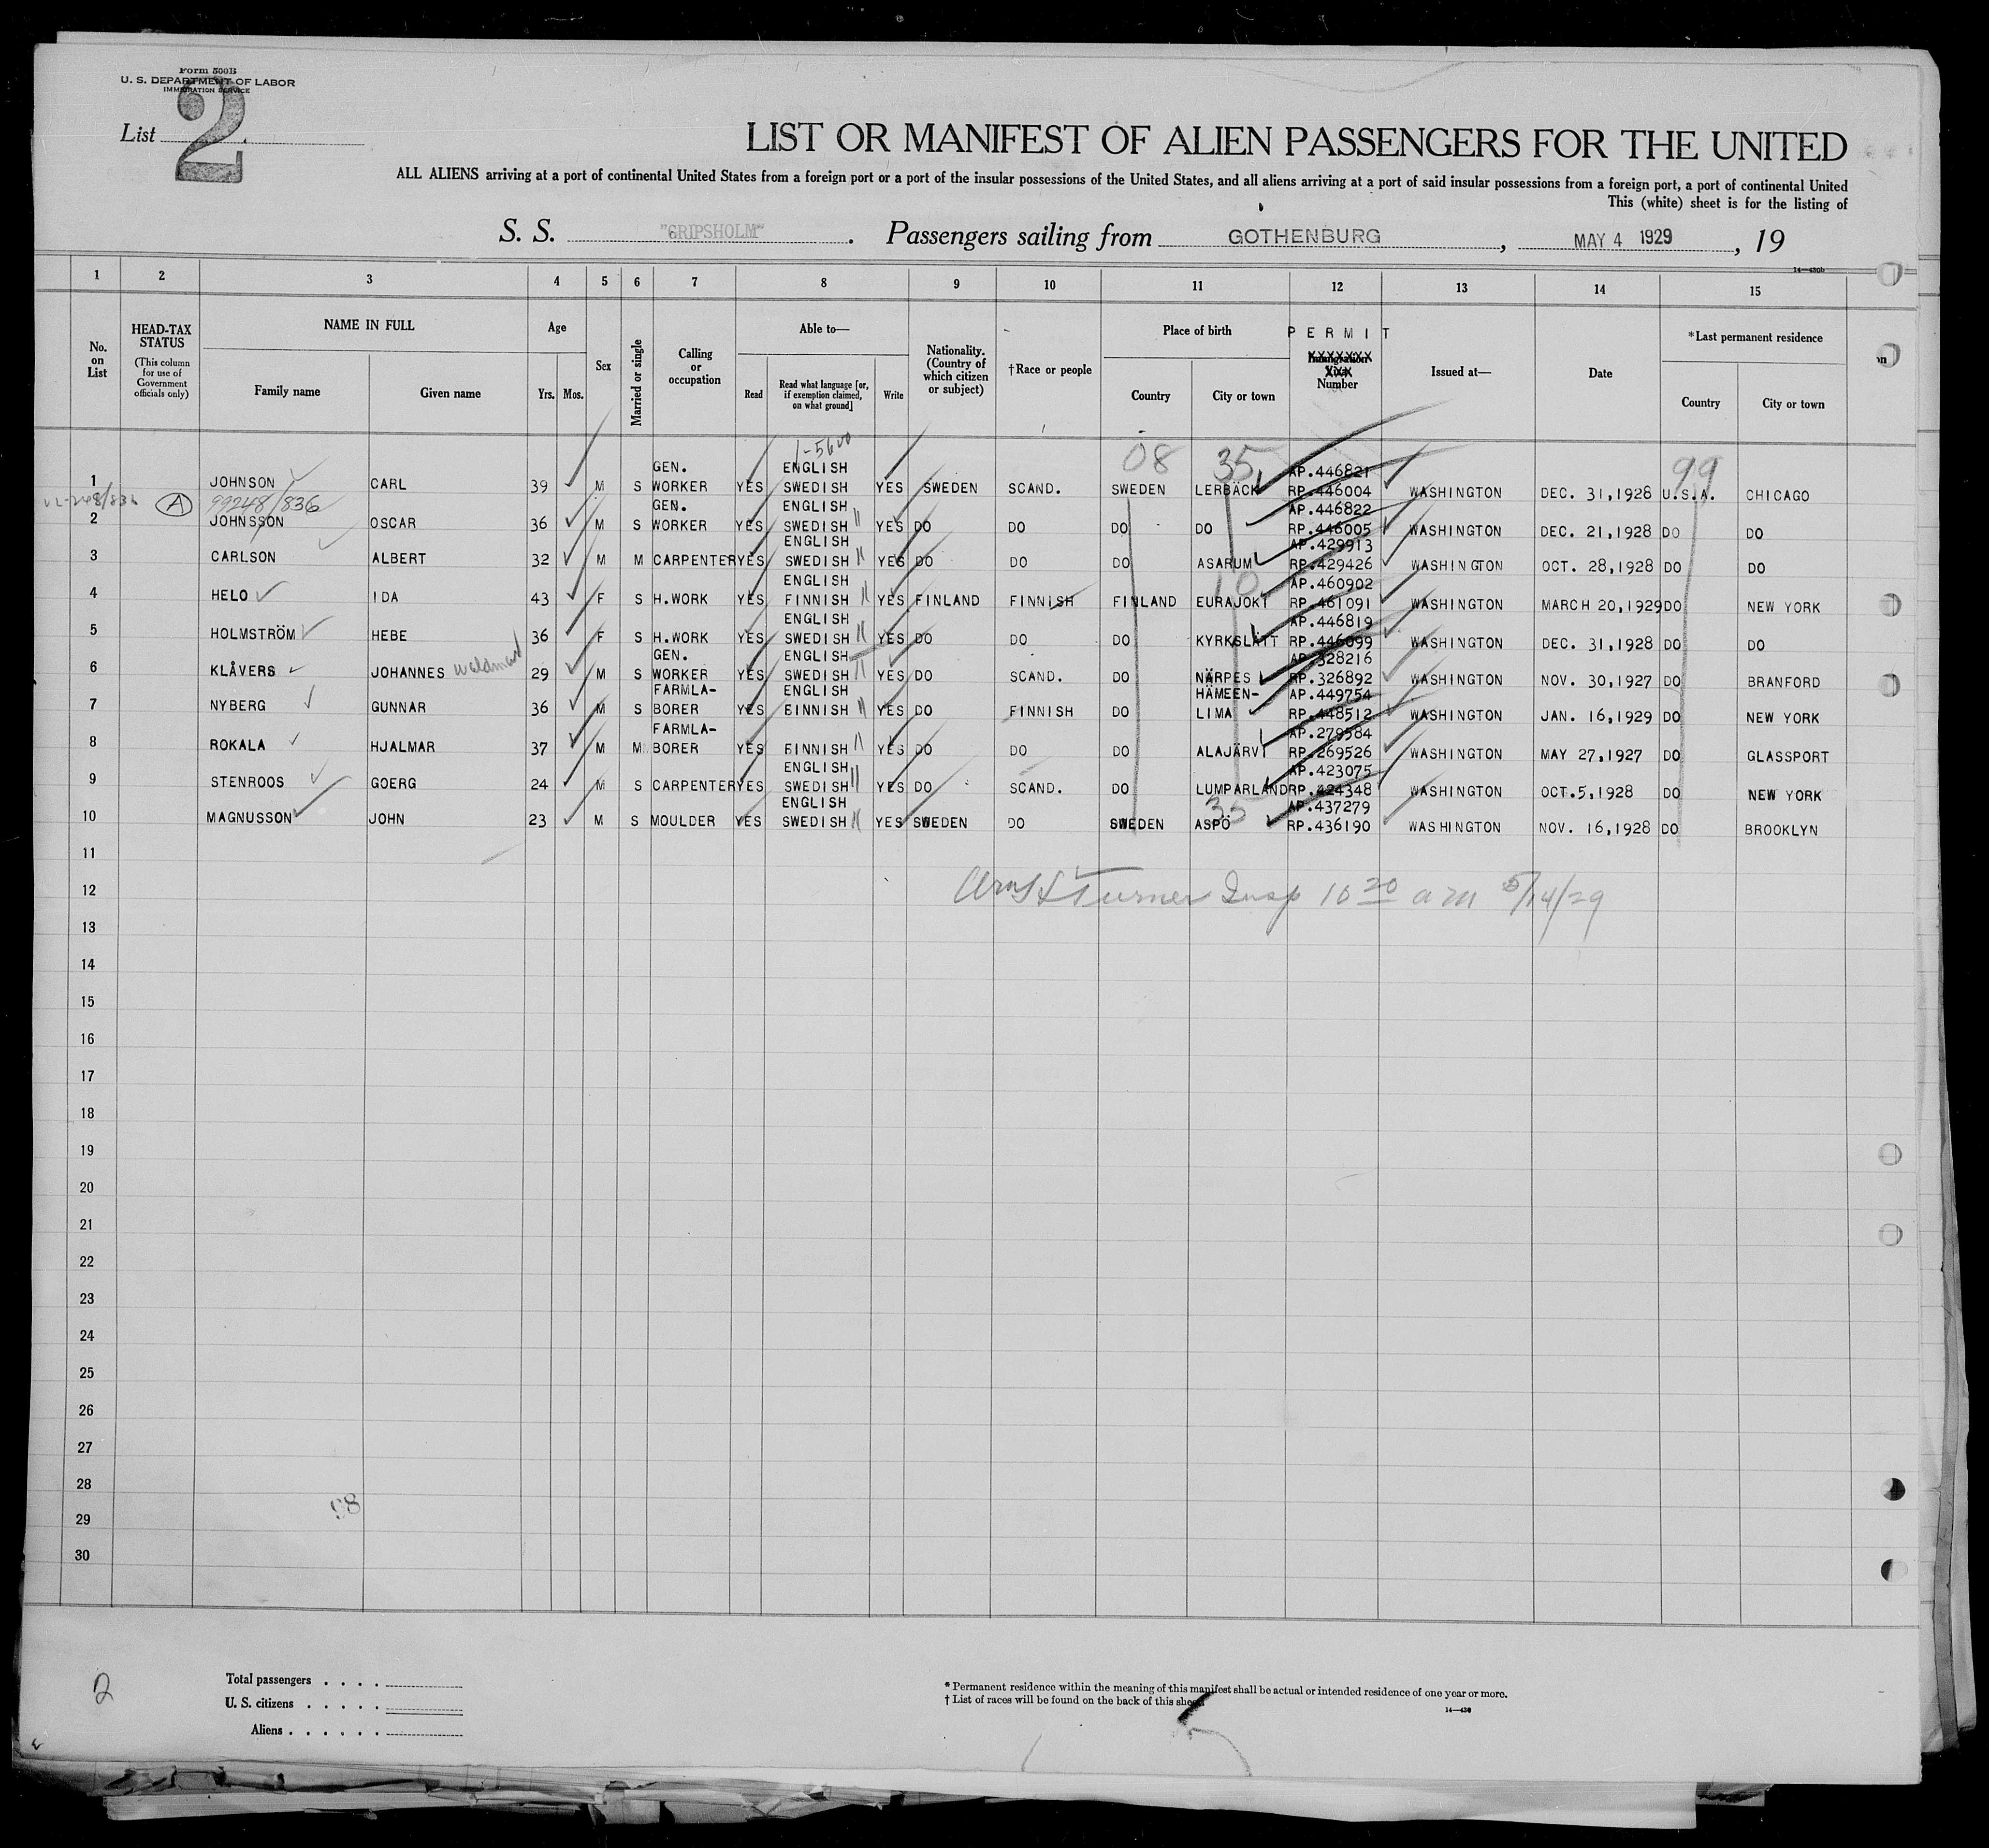 Form 500B
U. S. DEPARTMENT OF LABOR
IMMIGRATION SERVICE
List 2
LIST OR MANIFEST OF ALIEN PASSENGERS FOR THE UNITED
ALL ALIENS arriving at a port of continental United States from a foreign port or a port of the insular possessions of the United States, and all aliens arriving at a port of said insular possessions from a foreign port, a port of continental United
This (white) sheet is for the listing of
S. S. "GRIPSHOLM". Passengers sailing from GOTHENBURG, MAY 4 1929, 19
14—430b
1 2 3 4 5 6 7 8 9 10 11 12 13 14 15
No. on List
HEAD-TAX STATUS (This column for use of Government officials only)
NAME IN FULL Family name Given name
Age Yrs. Mos.
Sex
Married or single
Calling or occupation
Able to— Read Read what language [or, if exemption claimed, on what ground] Write
Nationality. (Country of which citizen or subject)
†Race or people
Place of birth Country City or town
PERMIT Immigration Visa Number
Issued at—
Date
*Last permanent residence Country City or town
1-5600
08 35 99
1 JOHNSON CARL 39 M S GEN. WORKER YES ENGLISH SWEDISH YES SWEDEN SCAND. SWEDEN LERBÄCK AP.446821 RP.446004 WASHINGTON DEC. 31,1928 U.S.A. CHICAGO
A 99248/836
2 JOHNSSON OSCAR 36 M S GEN. WORKER YES ENGLISH SWEDISH " YES DO DO DO DO AP.446822 RP.446005 WASHINGTON DEC. 21,1928 DO DO
3 CARLSON ALBERT 32 M M CARPENTER YES ENGLISH SWEDISH " YES DO DO DO ASARUM AP.429913 RP.429426 WASHINGTON OCT. 28,1928 DO DO
10
4 HELO IDA 43 F S H.WORK YES ENGLISH FINNISH " YES FINLAND FINNISH FINLAND EURAJOKI AP.460902 RP.461091 WASHINGTON MARCH 20,1929 DO NEW YORK
5 HOLMSTRÖM HEBE 36 F S H.WORK YES ENGLISH SWEDISH " YES DO DO DO KYRKSLÄTT AP.446819 RP.446099 WASHINGTON DEC. 31,1928 DO DO
6 KLÅVERS JOHANNES 29 M S GEN. WORKER YES ENGLISH SWEDISH " YES DO SCAND. DO NÄRPES AP.328216 RP.326892 WASHINGTON NOV. 30,1927 DO BRANFORD
7 NYBERG GUNNAR 36 M S FARMLA- BORER YES ENGLISH FINNISH " YES DO FINNISH DO HÄMEEN- LIMA AP.449754 RP.448512 WASHINGTON JAN. 16,1929 DO NEW YORK
8 ROKALA HJALMAR 37 M M FARMLA- BORER YES FINNISH " YES DO DO DO ALAJÄRVI AP.279584 RP.269526 WASHINGTON MAY 27,1927 DO GLASSPORT
9 STENROOS GOERG 24 M S CARPENTER YES ENGLISH SWEDISH " YES DO SCAND. DO LUMPARLAND AP.423075 RP.424348 WASHINGTON OCT.5,1928 DO NEW YORK
35
10 MAGNUSSON JOHN 23 M S MOULDER YES ENGLISH SWEDISH " YES SWEDEN DO SWEDEN ASPÖ AP.437279 RP.436190 WASHINGTON NOV. 16,1928 DO BROOKLYN
11
12 Turner Insp 10 20 am 5/14/29
13
14
15
16
17
18
19
20
21
22
23
24
25
26
27
28
98
29
30
2
Total passengers . . . .
U. S. citizens . . . . .
Aliens . . . . . .
* Permanent residence within the meaning of this manifest shall be actual or intended residence of one year or more.
† List of races will be found on the back of this sheet.
14—430